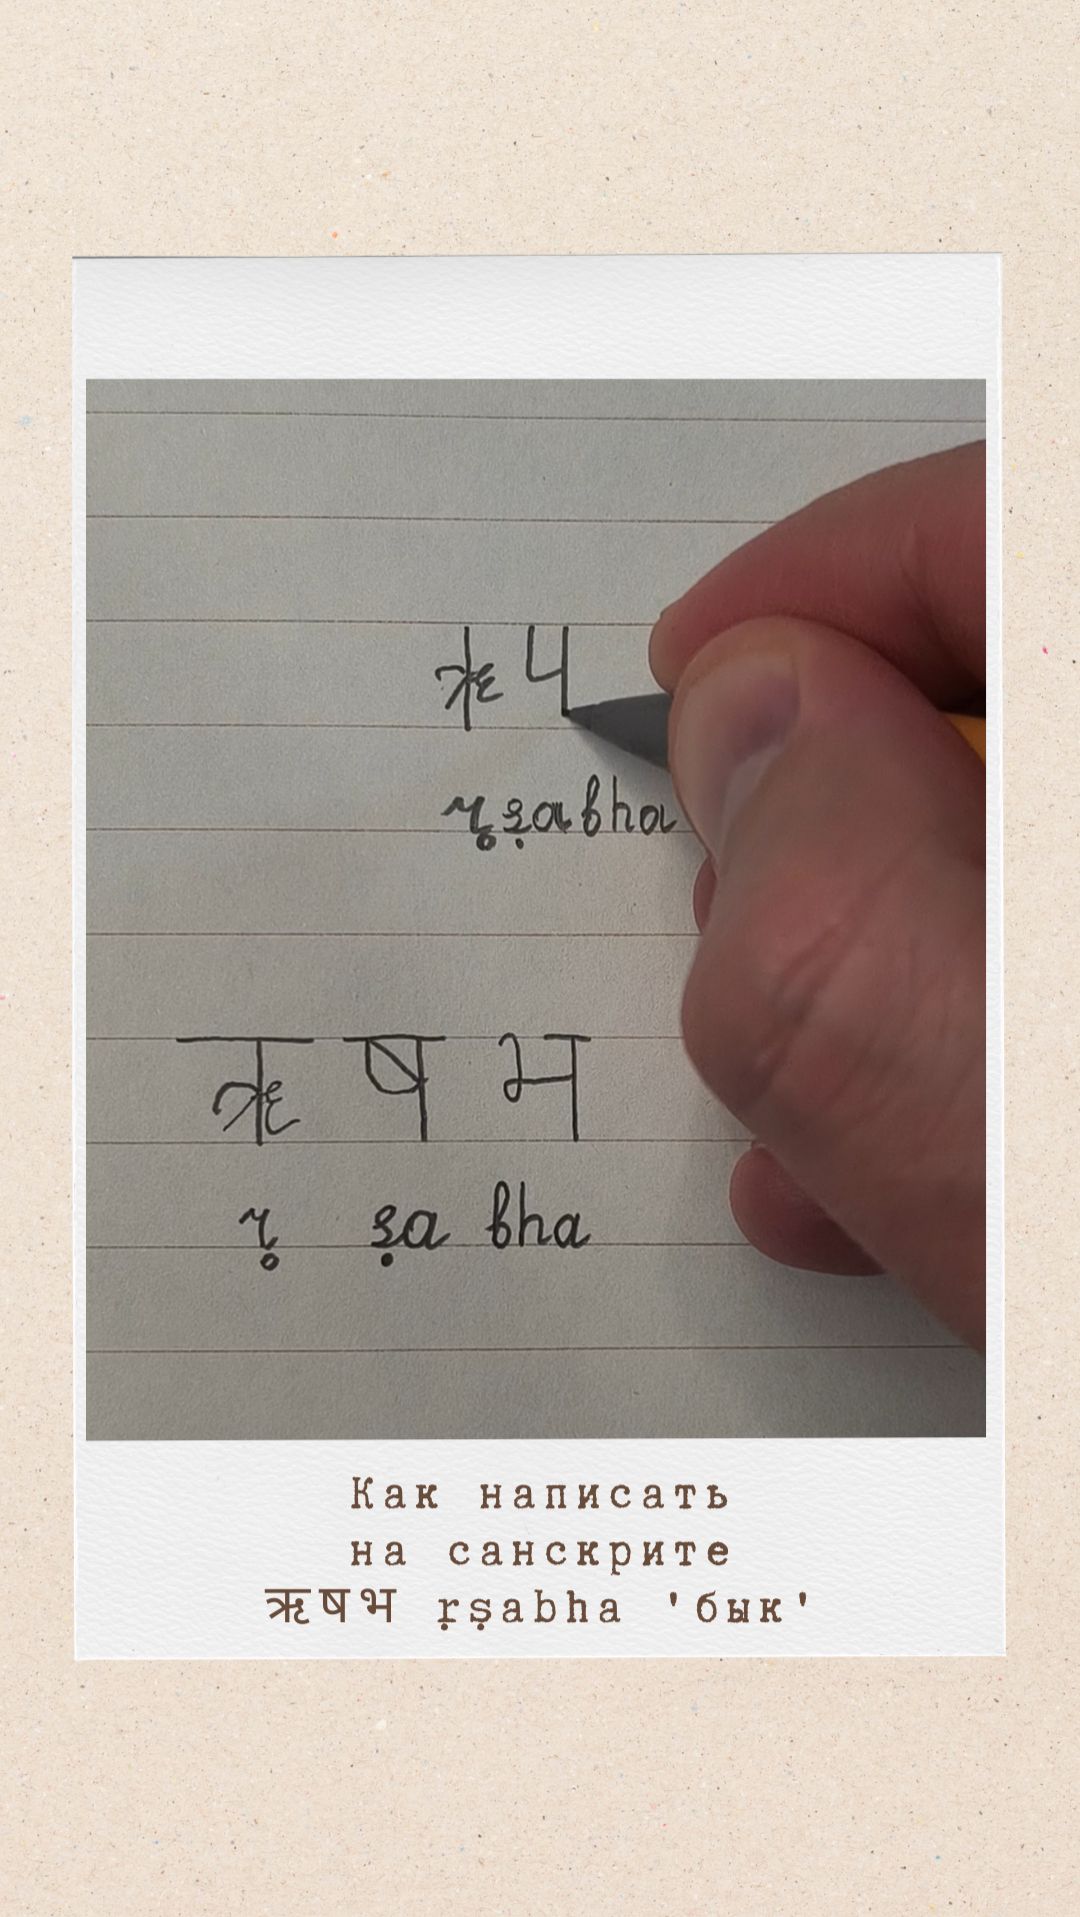 ऋ प
r̥ṣabha
ऋ ष भ
r̥ ṣa bha
Как написать
на санскрите
ऋषभ ṛṣabha 'бык'